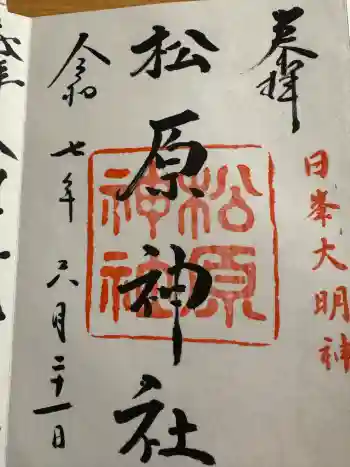 奉拝
日峯大明神
松原神社
松原
神社
令和七年六月二十一日